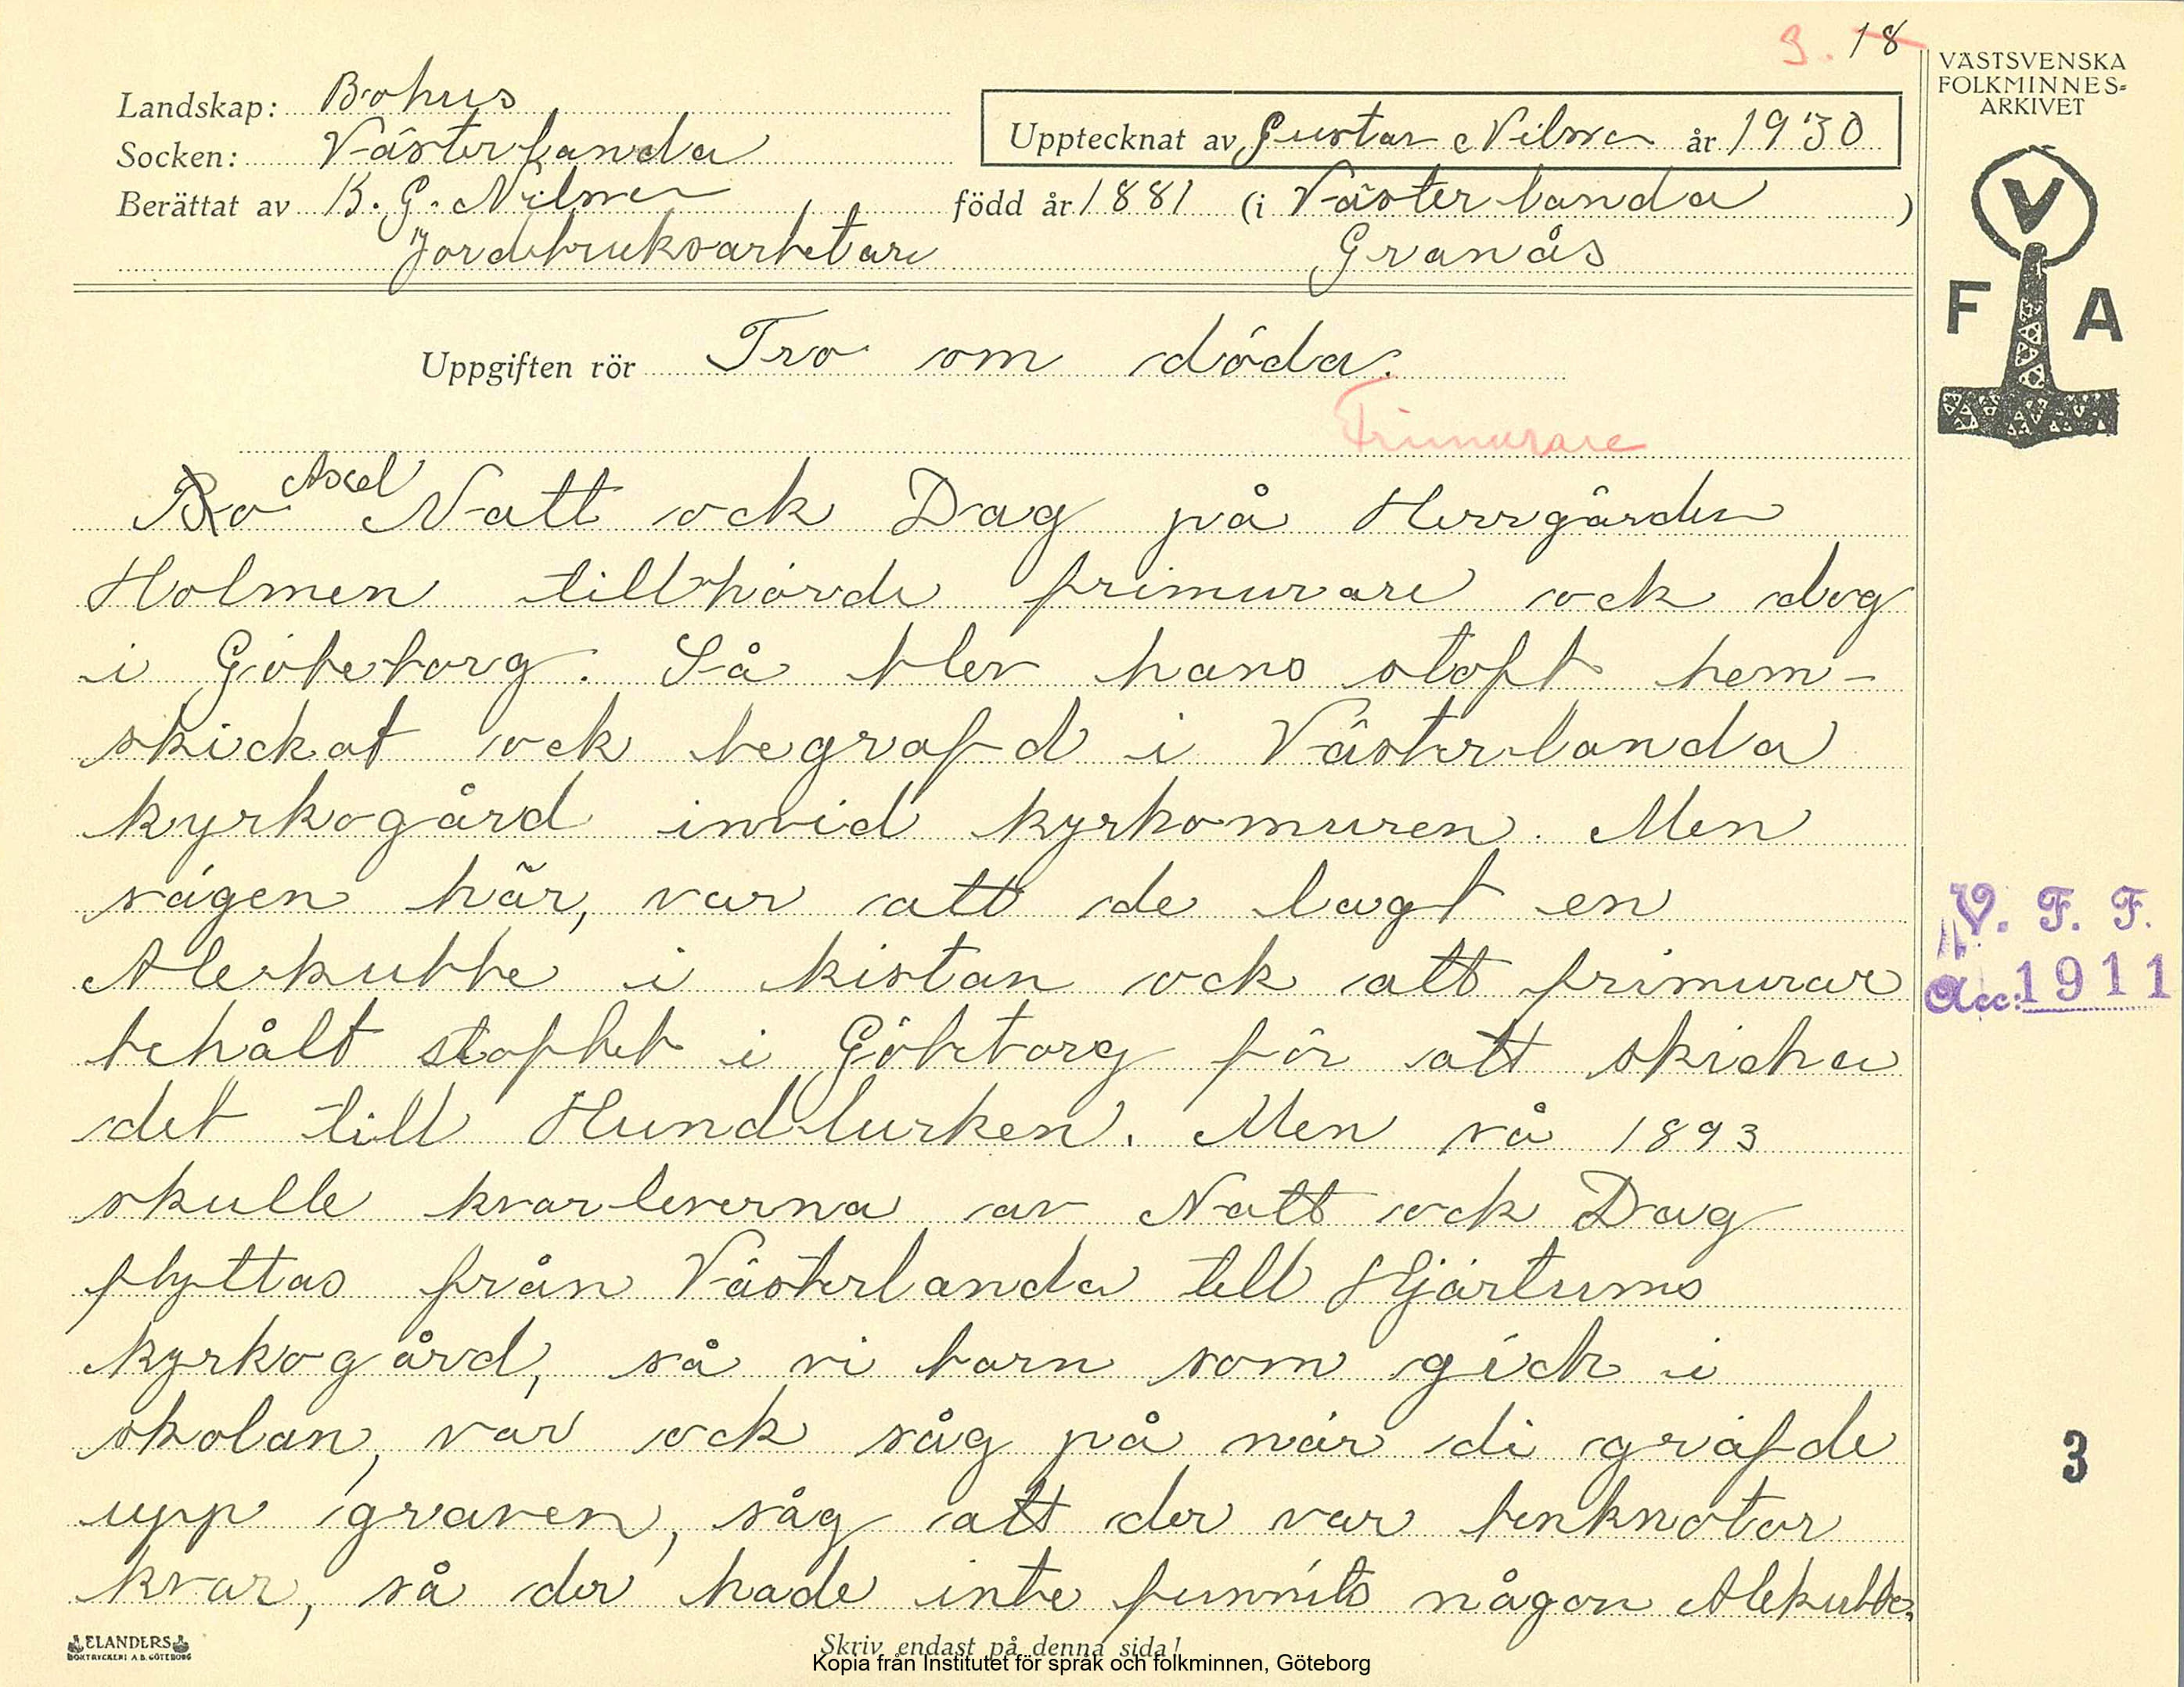 9. 18
VÄSTSVENSKA
FOLKMINNES=
ARKIVET
Landskap: Bohus
Upptecknat av Gustav Nilsson år 1930
Socken: Västerlanda
Berättat av B. G. Nilsson född år 1881 (i Västerlanda)
Jordbruksarbetare Granås
V
F A
Uppgiften rör Tro om döda.
Frimurare
Bo Axel Natt ock Dag på Herrgården
Holmen tillhörde frimurare ock dog
i Göteborg. Så blev hans stoft hem-
skickat ock begrafd i Västerlanda
kyrkogård invid kyrkomuren. Men
sägen här, var att de lagt en
Alekubbe i kistan ock att frimurar
behålt stoftet i Göteborg för att skicka
det till Hundturken. Men så 1893
skulle kvarleverna av Natt ock Dag
flyttas från Västerlanda till Hjärtums
kyrkogård, så vi barn som gick i
skolan, var ock såg på när di gräfde
upp graven, såg att der var benknotor
kvar, så der hade inte funnits någon Alekubbe.
V. F. F.
Acc: 1911
3
ELANDERS
BOKTRYCKERI A.B. GÖTEBORG
Skriv endast på denna sida!
Kopia från Institutet för språk och folkminnen, Göteborg